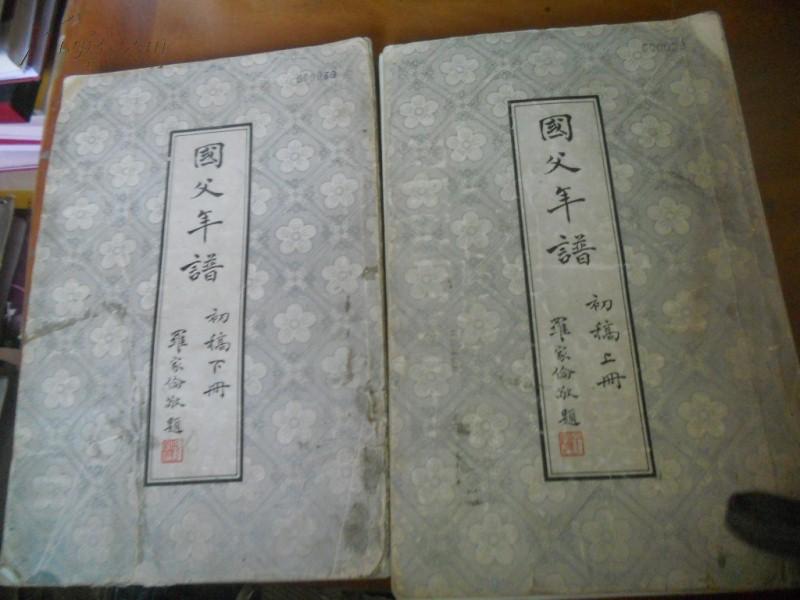 國父年譜
初稿下冊
羅家倫敬題
國父年譜
初稿上冊
羅家倫敬題